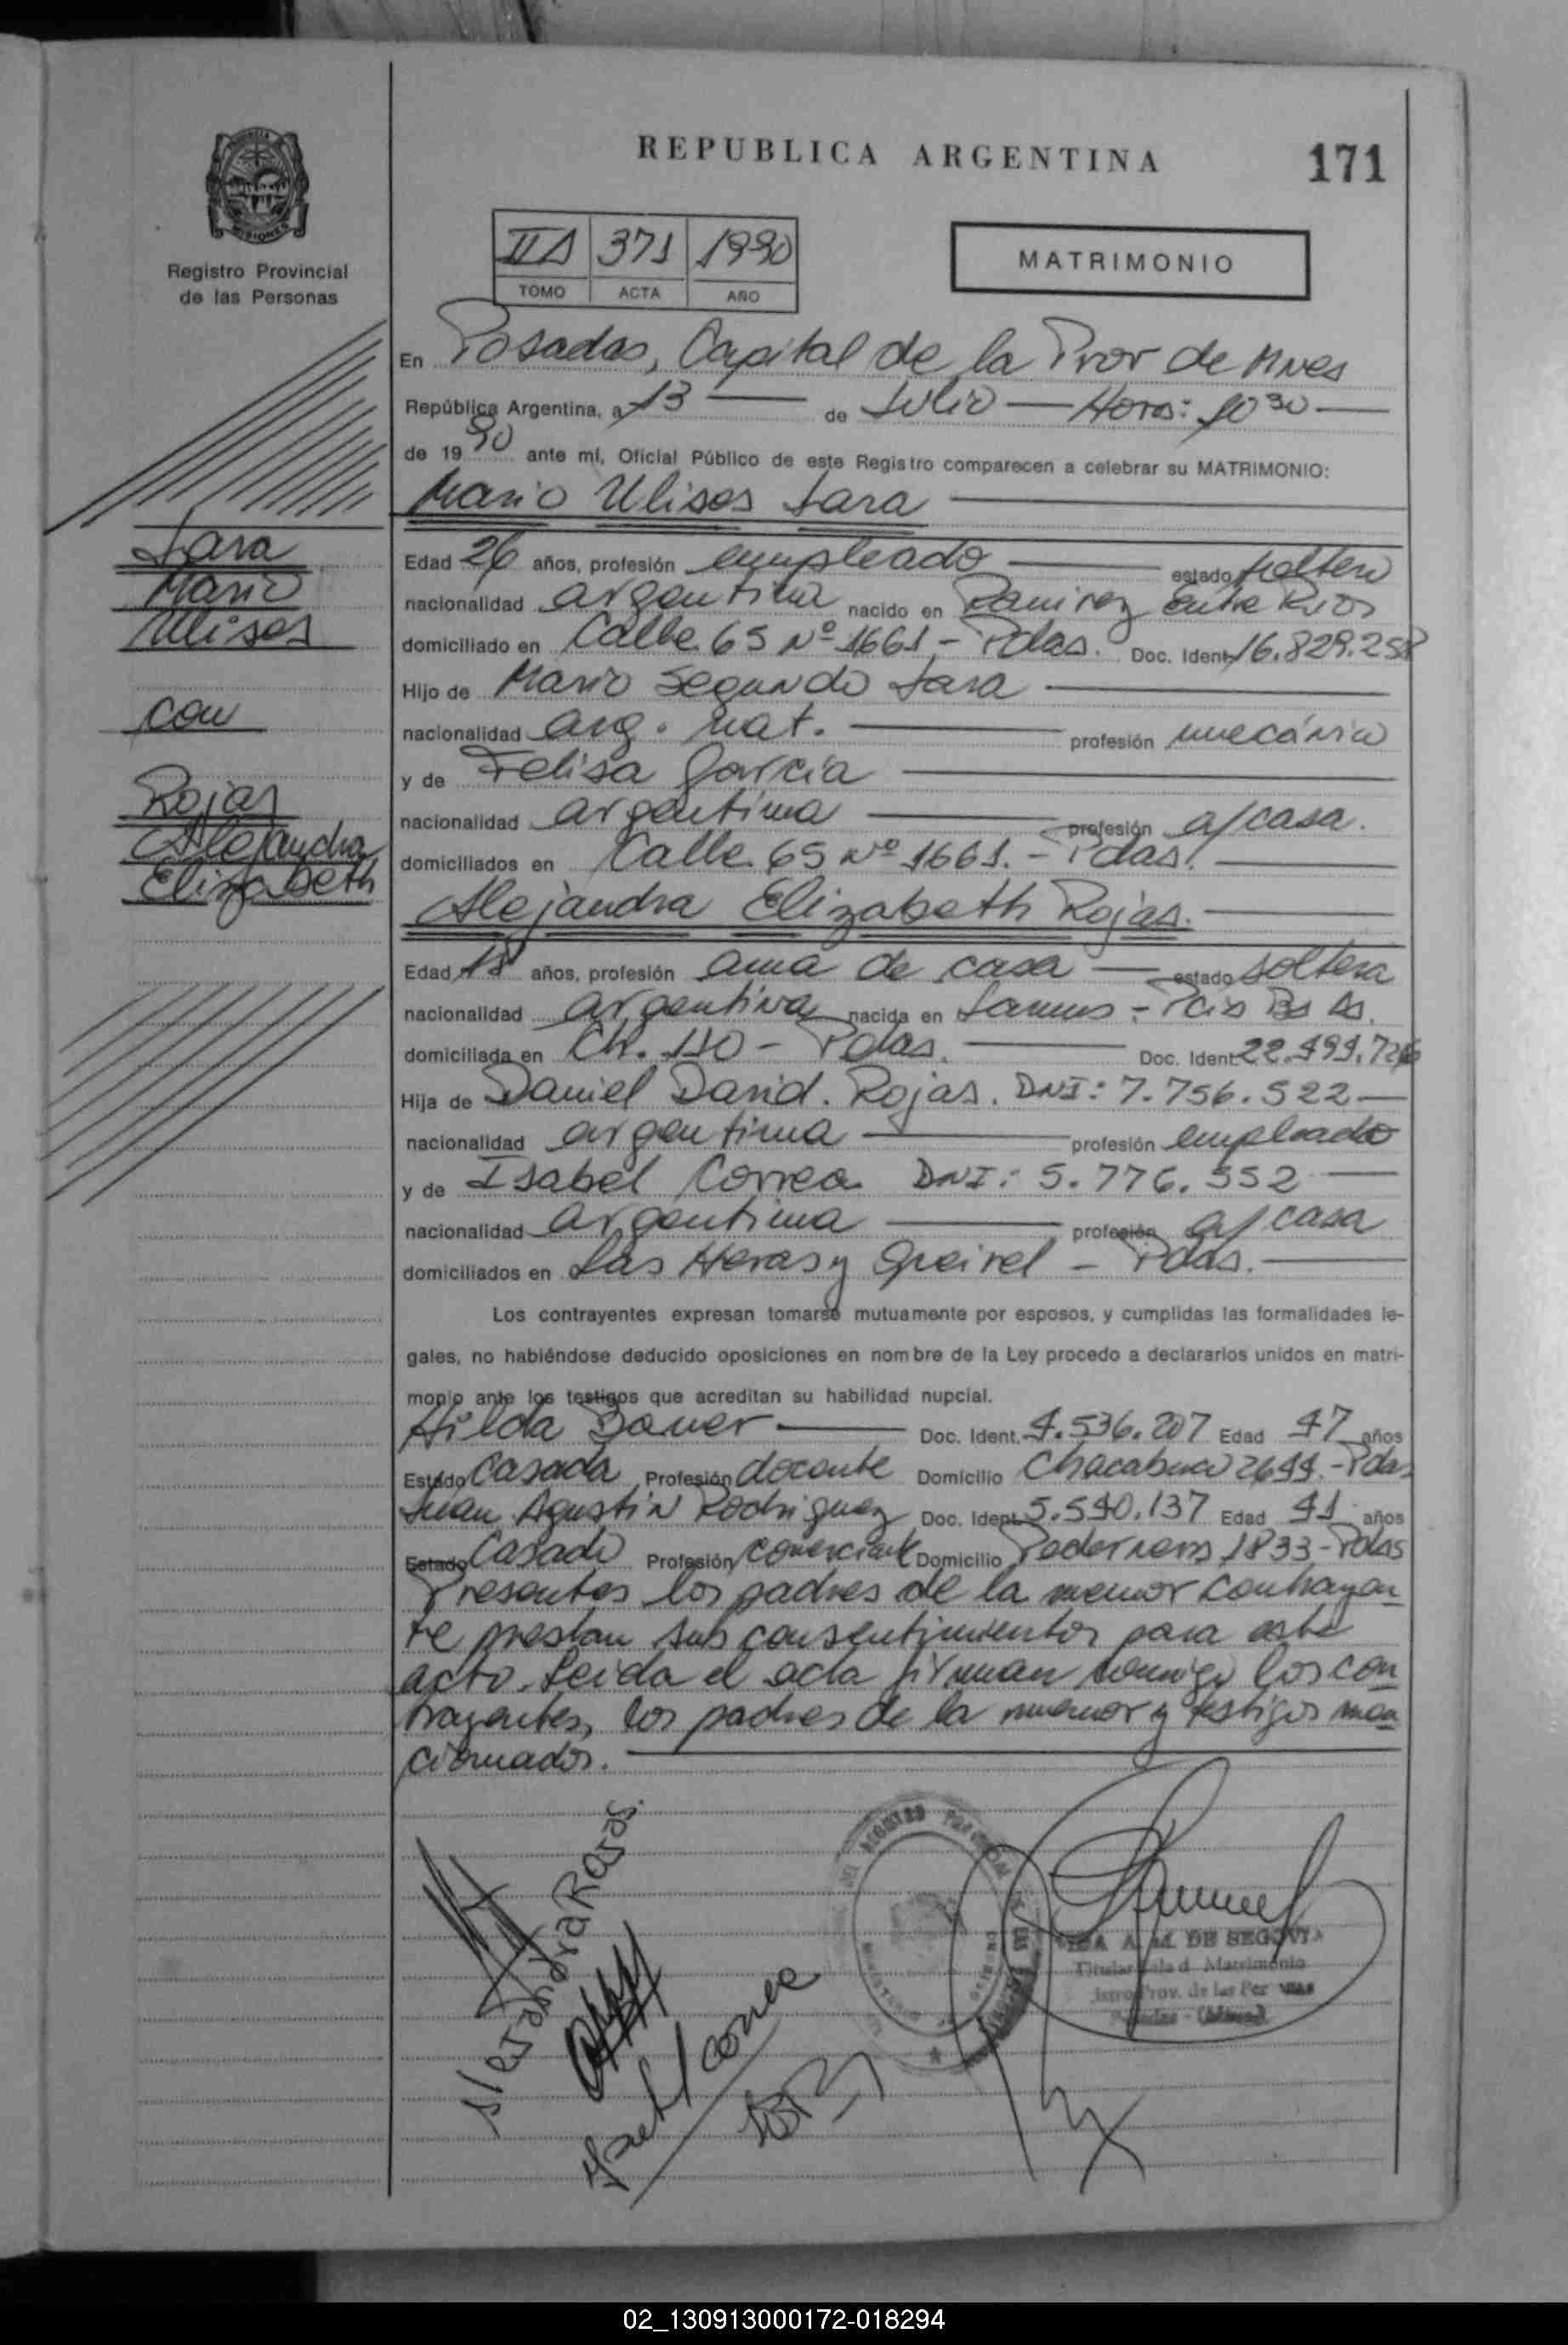 REPUBLICA ARGENTINA
171
Registro Provincial
de las Personas
371 1990
TOMO ACTA AÑO
MATRIMONIO
En Posadas, Capital de la Prov de Mnes
República Argentina, a 13 de Julio Hora: 10 30
de 19 90 ante mí, Oficial Público de este Registro comparecen a celebrar su MATRIMONIO:
Mario Ulises Lara
Lara
Mario
Ulises
con
Rojas
Alejandra
Elizabeth
Edad 26 años, profesión empleado estado soltero
nacionalidad argentina nacido en Ramirez Entre Rios
domiciliado en Calle 65 Nº 1661 - Pdas. Doc. Ident. 16.829.258
Hijo de Mario Segundo Lara
nacionalidad arg. nat. profesión mecánico
y de Felisa Garcia
nacionalidad argentina profesión a/casa.
domiciliados en Calle 65 Nº 1661. - Pdas.
Alejandra Elizabeth Rojas.
Edad 18 años, profesión ama de casa estado soltera
nacionalidad argentina nacida en Lanus - Pcia Bs As.
domiciliada en Ch. 110 - Pdas. Doc. Ident.
Hija de Daniel David. Rojas. DNI: 7.756.522
nacionalidad argentina profesión empleado
y de Isabel Correa DNI: 5.776.552
nacionalidad argentina profesión a/casa
domiciliados en Las Heras y - Pdas.
Los contrayentes expresan tomarse mutuamente por esposos, y cumplidas las formalidades le-
gales, no habiéndose deducido oposiciones en nombre de la Ley procedo a declararlos unidos en matri-
monio ante los testigos que acreditan su habilidad nupcial.
Hilda Bauer Doc. Ident. 4.536.207 Edad 47 años
Estado Casada Profesión docente Domicilio Chacabuco 2644 - Pdas
Juan Agustin Rodriguez Doc. Ident. 5.540.137 Edad 41 años
Estado Casado Profesión comerciante Domicilio Pedernera 1833 - Pdas
Presentes los padres de la menor contrayen
te prestan sus consentimientos para este
acto. Leida el acta firman conmigo los con
trayentes, los padres de la menor y testigos men
cionados.
Alejandra Rojas.
Isabel Correa
A. M. DE SEGOVIA
Titular Sala d. Matrimonio
istro Prov. de las Per nas
Posadas - (Misiones)
02_130913000172-018294